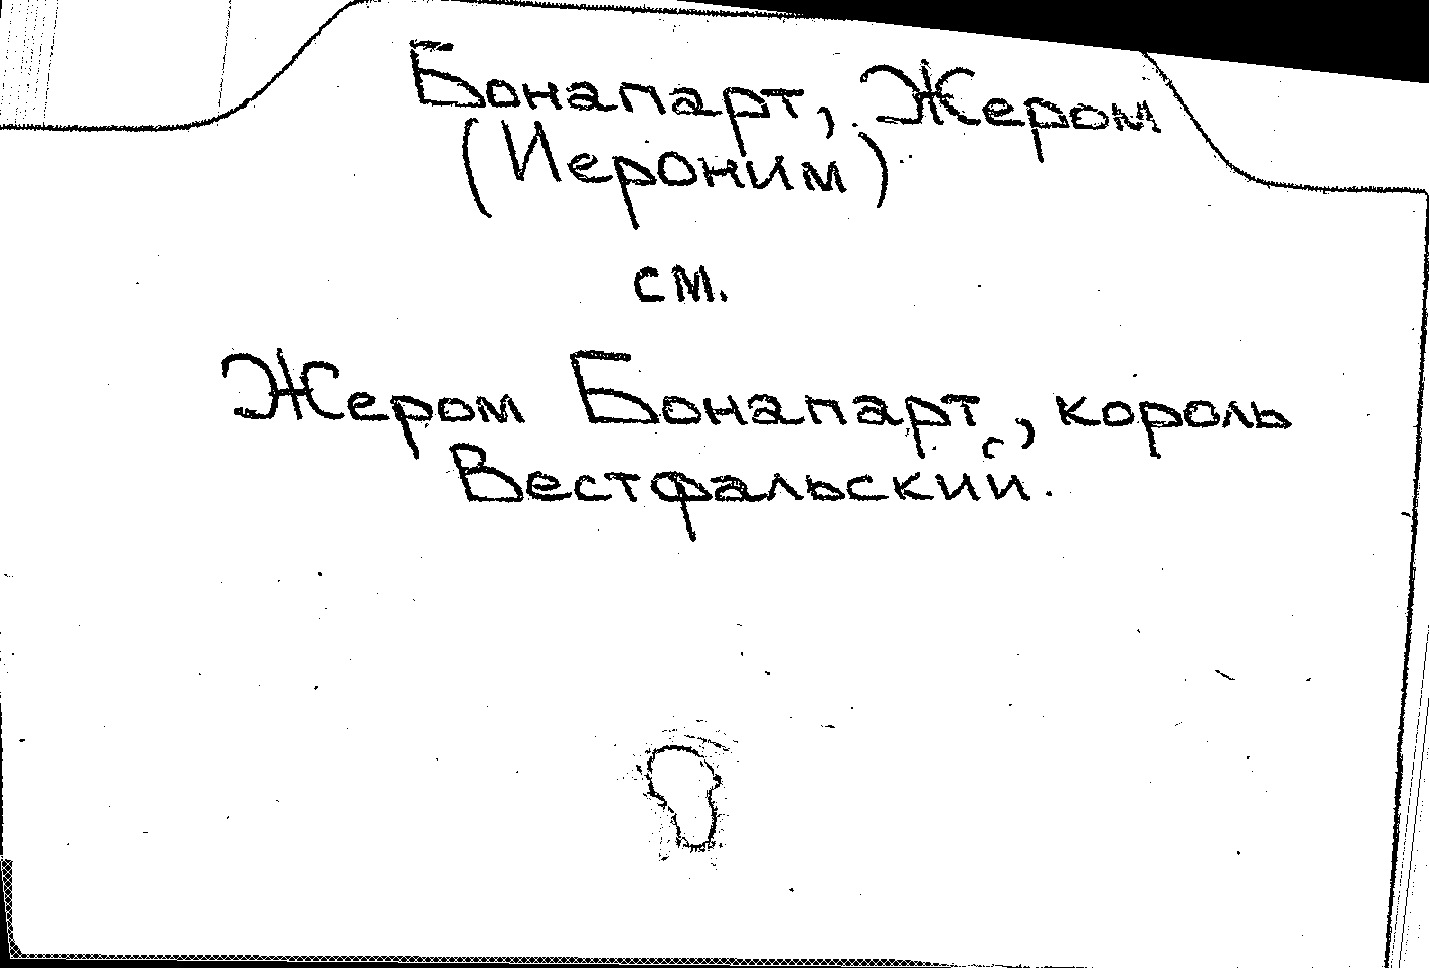 Бонапарт, Жером
(Иероним)
см.
Жером Бонапарт, король
Вестфальский.